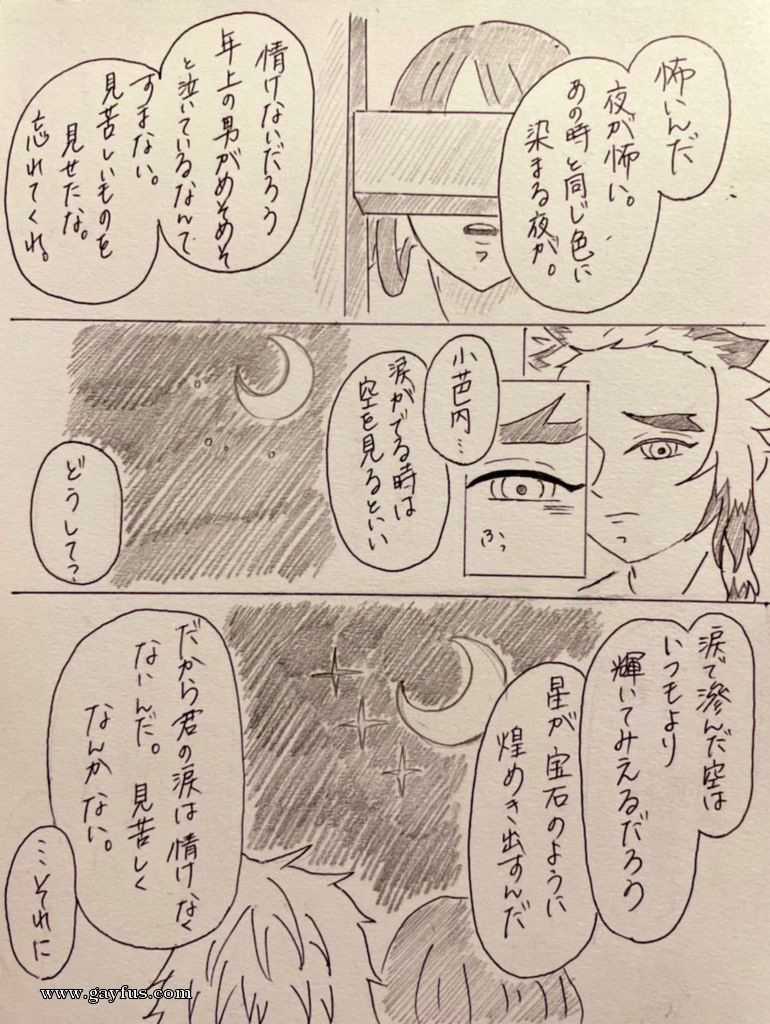 怖いんだ
夜が怖い。
あの時と同じ色に
染まる夜が。
情けないだろう
年上の男がめそめそ
と泣いているなんて
すまない。
見苦しいものを
見せたな。
忘れてくれ。
小芭内…
涙がでる時は
空を見るといい
ふっ
どうして?
涙で滲んだ空は
いつもより
輝いてみえるだろう
星が宝石のように
煌めき出すんだ
だから君の涙は情けなく
ないんだ。見苦しく
なんかない。
…それに
www.gayfus.com